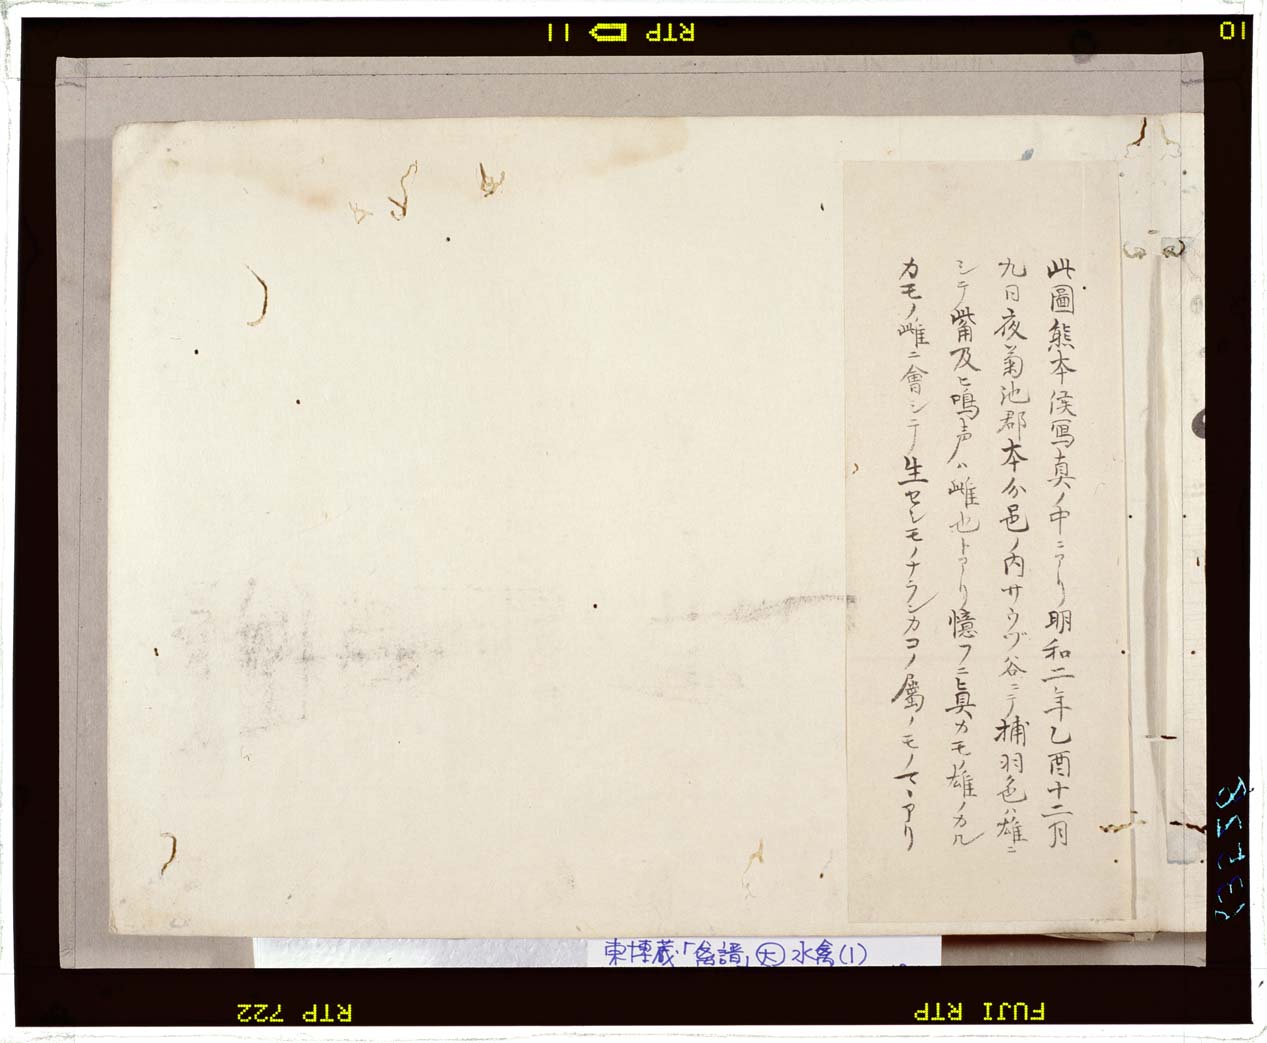 此圖熊本侯冩真ノ中ニアリ明和二年乙酉十二月
九日夜菊池郡本分邑ノ内サウヅ谷ニテ捕羽色ハ雄ニ
シテ觜及ヒ鳴声ハ雌也トアリ憶フニ真カモノ雄ノカル
カモノ雌ニ會シテ生セシモノナランカコノ屬ノモノマヽアリ
東博蔵「禽譜」大 水禽(1)
RTP 11
10
RTP 722
FUJI RTP